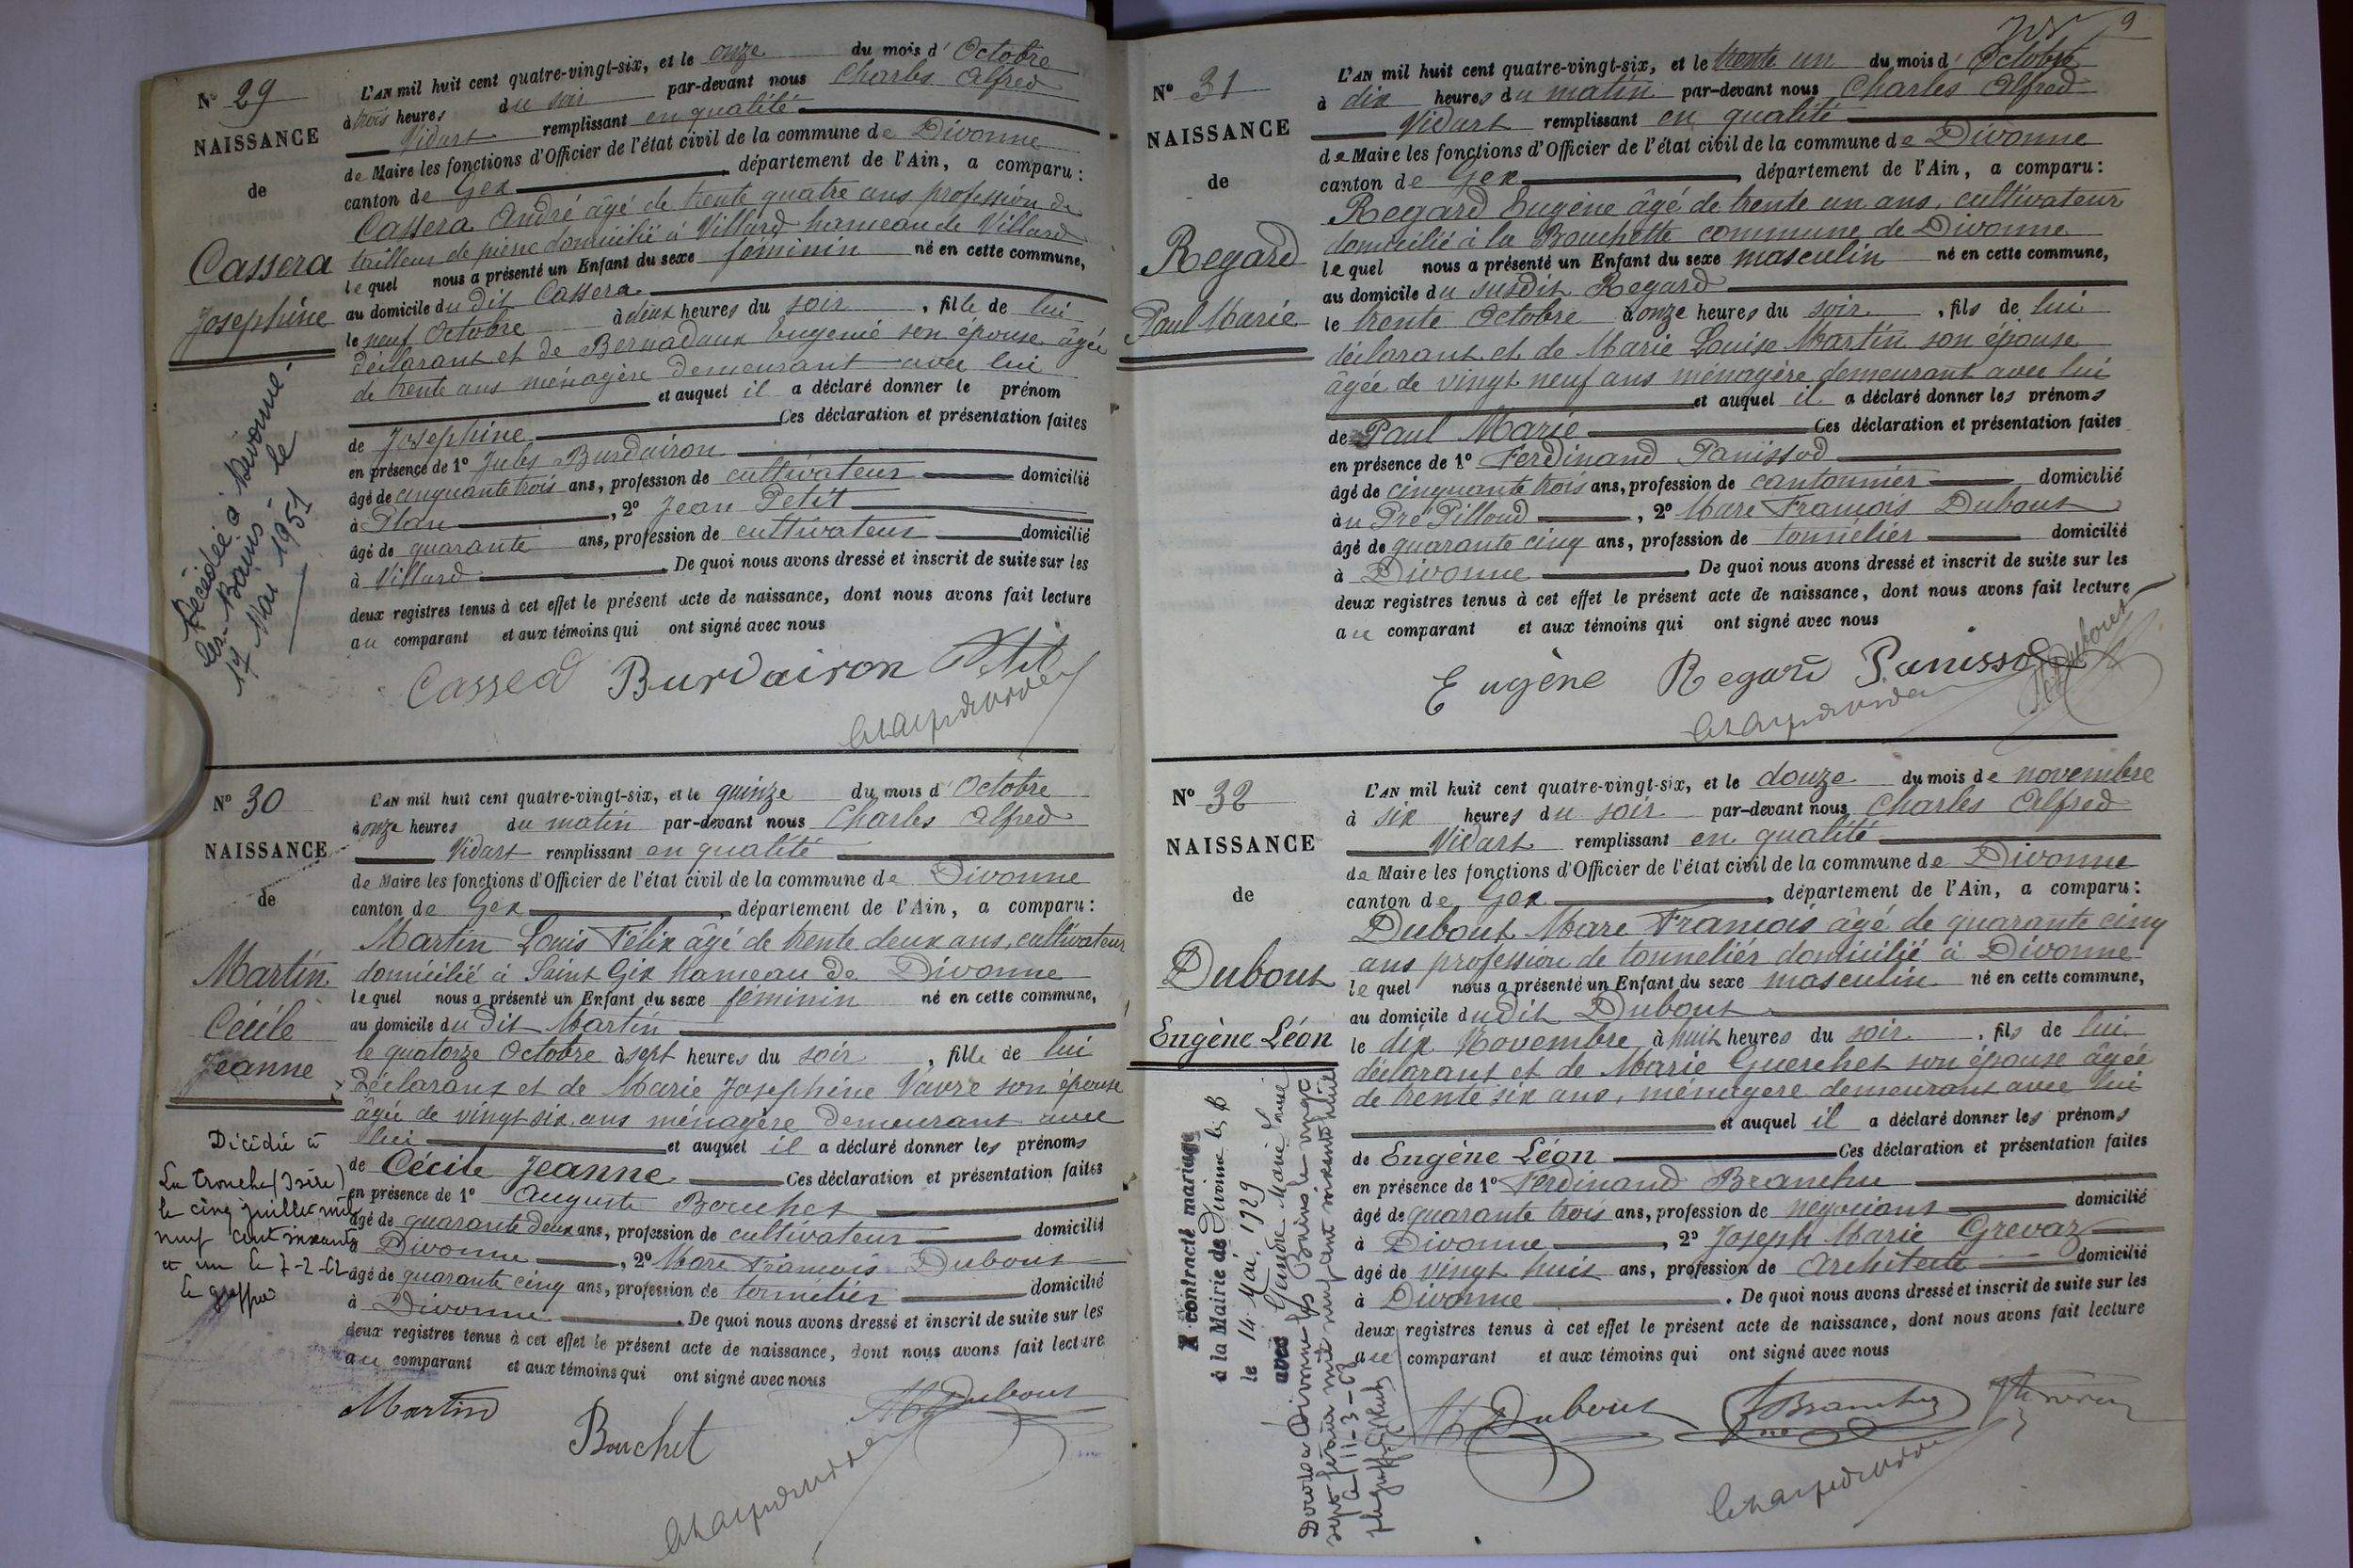 N° 29
NAISSANCE
de
Cassera
Josephine
Décédée à Divonne-
les-Bains - le
17 Mai 1951
L'AN mil huit cent quatre-vingt-six, et le onze du mois d' Octobre
à trois heures du soir par-devant nous Charles Alfred
Vidart remplissant en qualité
de Maire les fonctions d'Officier de l'état civil de la commune de Divonne
canton de Gex département de l'Ain, a comparu :
Cassera André âgé de trente quatre ans profession de
tailleur de pierre domicilié à Villard hameau de Villard
lequel nous a présenté un Enfant du sexe féminin né en cette commune,
au domicile du dit Cassera
le neuf Octobre à deux heures du soir, fille de lui
déclarant et de Bernadaux Eugenie son épouse âgée
de trente ans ménagère demeurant avec lui
et auquel il a déclaré donner le prénom
de Josephine Ces déclaration et présentation faites
en présence de 1° Jules Burdairon
âgé de cinquante trois ans, profession de cultivateur domicilié
à Plan, 2° Jean Petit
âgé de quarante ans, profession de cultivateur domicilié
à Villard. De quoi nous avons dressé et inscrit de suite sur les
deux registres tenus à cet effet le présent acte de naissance, dont nous avons fait lecture
au comparant et aux témoins qui ont signé avec nous
Burdairon Petit
N° 30
NAISSANCE
de
Martin
Cécile
Jeanne
Décédée à
La Tronche (Isère)
le cinq juillet mil
neuf cent soixante
et un le 7-2-62
Le greffier
L'AN mil huit cent quatre-vingt-six, et le quinze du mois d' Octobre
à onze heures du matin par-devant nous Charles Alfred
Vidart remplissant en qualité
de Maire les fonctions d'Officier de l'état civil de la commune de Divonne
canton de Gex, département de l'Ain, a comparu :
Martin Louis Félix âgé de trente deux ans, cultivateur
domicilié à Saint Gix hameau de Divonne
lequel nous a présenté un Enfant du sexe féminin né en cette commune,
au domicile du dit Martin
le quatorze Octobre à sept heures du soir, fille de lui
déclarant et de Marie Josephine Vavre son épouse
âgée de vingt six ans ménagère demeurant avec
lui et auquel il a déclaré donner les prénoms
de Cécile Jeanne Ces déclaration et présentation faites
en présence de 1° Auguste Bouchet
âgé de quarante deux ans, profession de cultivateur domicilié
à Divonne, 2° Marc François Dubout
âgé de quarante cinq ans, profession de tonnélier domicilié
à Divonne. De quoi nous avons dressé et inscrit de suite sur les
deux registres tenus à cet effet le présent acte de naissance, dont nous avons fait lecture
au comparant et aux témoins qui ont signé avec nous
Martin Bouchet Dubout
9
N° 31
NAISSANCE
de
Regard
Paul Marie
L'AN mil huit cent quatre-vingt-six, et le trente un du mois d' Octobre
à dix heures du matin par-devant nous Charles Alfred
Vidart remplissant en qualité
de Maire les fonctions d'Officier de l'état civil de la commune de Divonne
canton de Gex, département de l'Ain, a comparu :
Regard Eugène âgé de trente un ans, cultivateur
domicilié à la Bouchette commune de Divonne
lequel nous a présenté un Enfant du sexe masculin né en cette commune,
au domicile du susdit Regard
le trente Octobre à onze heures du soir, fils de lui
déclarant et de Marie Louise Martin son épouse
âgée de vingt neuf ans ménagère demeurant avec lui
et auquel il a déclaré donner les prénoms
de Paul Marie Ces déclaration et présentation faites
en présence de 1° Ferdinand Panissod
âgé de cinquante trois ans, profession de cantonnier domicilié
au Pré Pilloud, 2° Marc François Dubout
âgé de quarante cinq ans, profession de tonnélier domicilié
à Divonne. De quoi nous avons dressé et inscrit de suite sur les
deux registres tenus à cet effet le présent acte de naissance, dont nous avons fait lecture
au comparant et aux témoins qui ont signé avec nous
Eugène Regard Panissod Dubout
N° 32
NAISSANCE
de
Dubout
Eugène Léon
A contracté mariage
à la Mairie de Divonne les B
le 14 Mai 1929
avec Marie Louise
Décédé à Divonne les Bains le vingt
sept février mil neuf cent soixante huit
le 11-3-68
L'AN mil huit cent quatre-vingt-six, et le douze du mois de novembre
à six heures du soir par-devant nous Charles Alfred
Vidart remplissant en qualité
de Maire les fonctions d'Officier de l'état civil de la commune de Divonne
canton de Gex, département de l'Ain, a comparu :
Dubout Marc François âgé de quarante cinq
ans profession de tonnelier domicilié à Divonne
lequel nous a présenté un Enfant du sexe masculin né en cette commune,
au domicile du dit Dubout
le dix Novembre à huit heures du soir, fils de lui
déclarant et de Marie Guerchet son épouse âgée
de trente six ans, ménagère demeurant avec lui
et auquel il a déclaré donner les prénoms
de Eugène Léon Ces déclaration et présentation faites
en présence de 1° Ferdinand Branchu
âgé de quarante trois ans, profession de négociant domicilié
à Divonne, 2° Joseph Marie Grevaz
âgé de vingt huit ans, profession de Architecte domicilié
à Divonne. De quoi nous avons dressé et inscrit de suite sur les
deux registres tenus à cet effet le présent acte de naissance, dont nous avons fait lecture
au comparant et aux témoins qui ont signé avec nous
Dubout Branchu